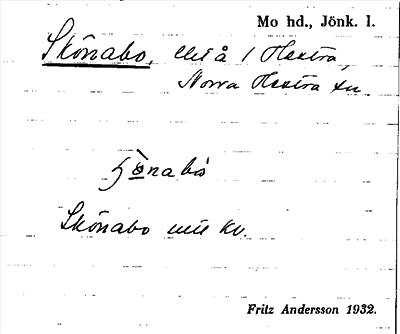 Mo hd., Jönk. l.
Skönabo, å 1 Hestra,
Norra Hestra sn.
ʃö̀nabó
Skönabo kv.
Fritz Andersson 1932.